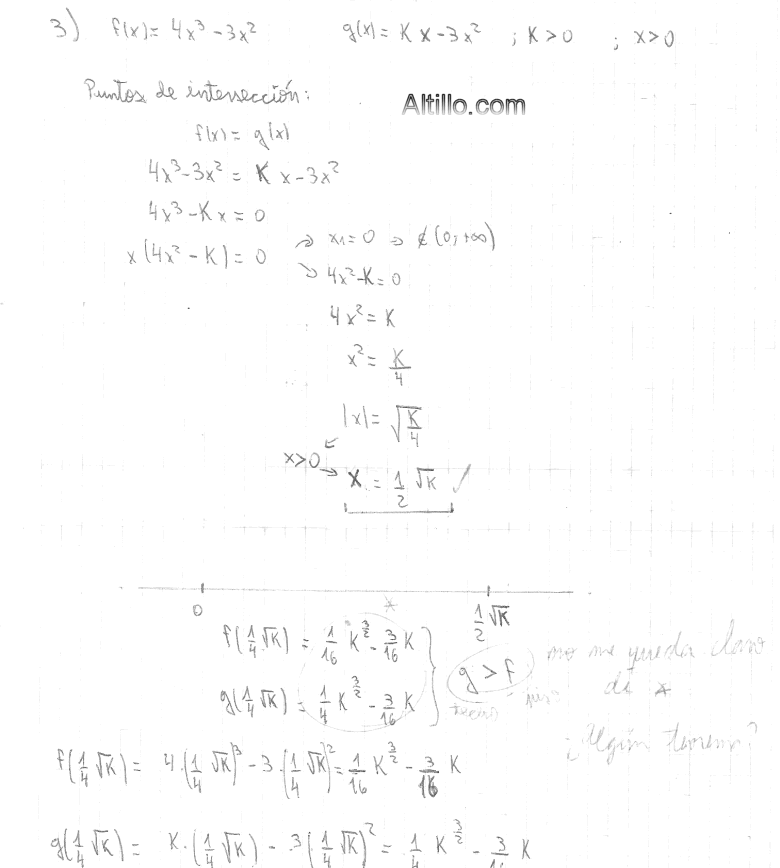 3) f(x) = 4x³ - 3x² g(x) = K x - 3x² ; K > 0 ; x > 0
Puntos de intersección:
Altillo.com
f(x) = g(x)
4x³ - 3x² = K x - 3x²
4x³ - K x = 0
x (4x² - K) = 0 → x₁ = 0 ⇒ ∉ (0; +∞)
↘ 4x² - K = 0
4x² = K
x² = K/4
|x| = √(K/4)
x > 0
x = 1/2 √K ✓
0 * 1/2 √K
f(1/4 √K) = 1/16 K^(3/2) - 3/16 K
g(1/4 √K) = 1/4 K^(3/2) - 3/16 K
} g > f
techo piso
no me queda claro
de *
¿Algún teorema?
f(1/4 √K) = 4·(1/4 √K)³ - 3·(1/4 √K)² = 1/16 K^(3/2) - 3/16 K
g(1/4 √K) = K·(1/4 √K) - 3(1/4 √K)² = 1/4 K^(3/2) - 3/16 K